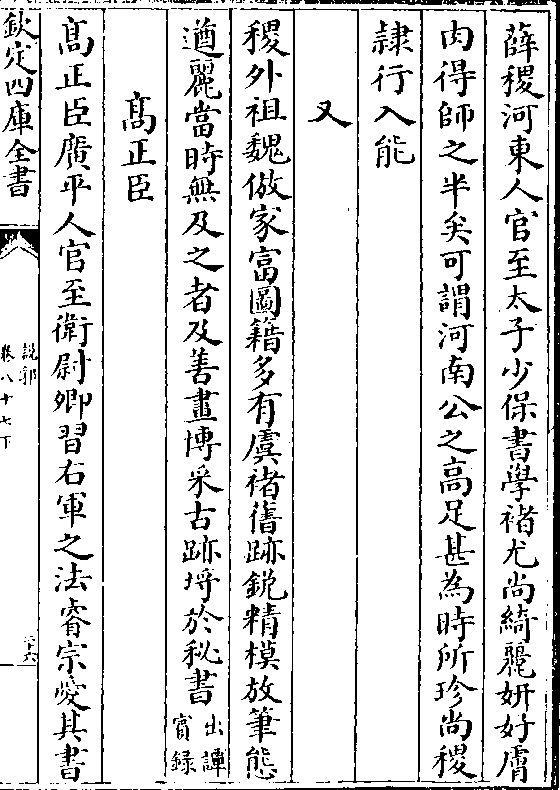 薛稷河東人官至太子少保書學褚尤尚綺麗妍好膚
肉得師之半矣可謂河南公之高足甚為時所珍尚稷
隷行入能
又
稷外祖魏倣家富圖籍多有虞褚舊跡銳精模放筆態
遒麗當時無及之者及善畫博采古跡埓於秘書出譚
賓録
髙正臣
髙正臣廣平人官至衛尉卿習右軍之法睿宗愛其書
欽定四庫全書
說郛
卷八十七下
三十六